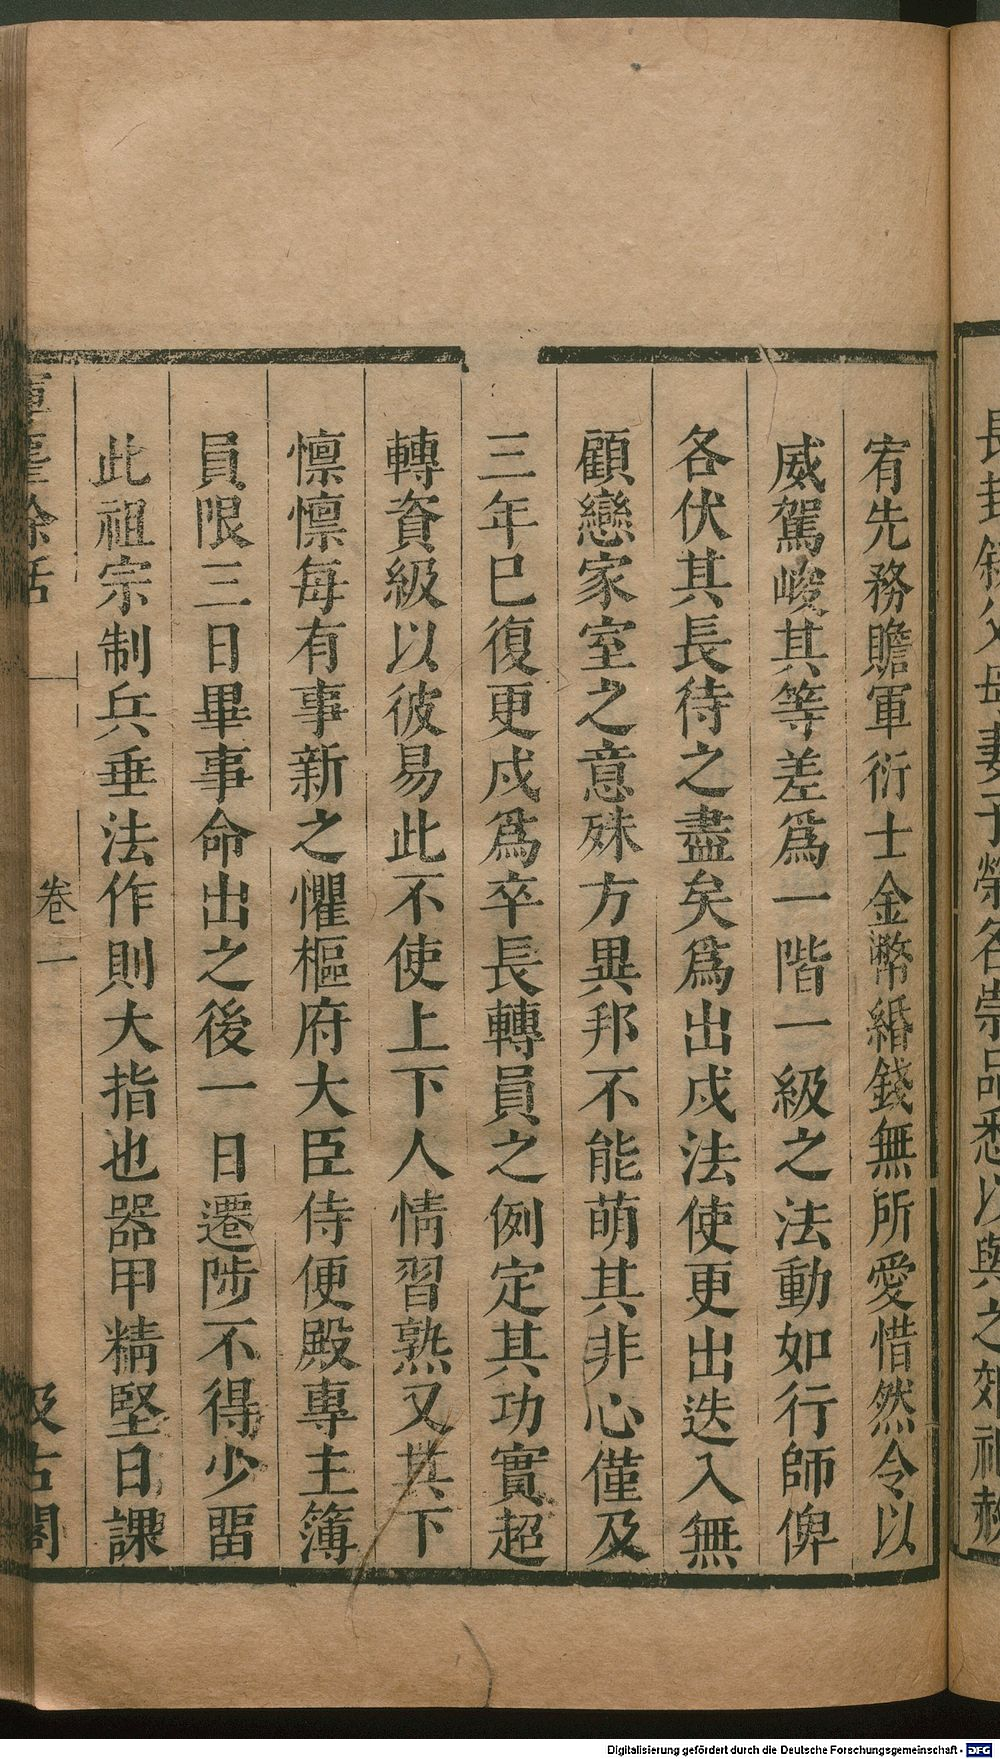 長封叙父母妻子榮名崇品悉以與之郊祀赦
宥先務贍軍衍士金幣緡錢無所愛惜然令以
威駕峻其等差爲一階一級之法動如行師俾
各伏其長待之盡矣爲出戍法使更出迭入無
顧戀家室之意殊方異邦不能萌其非心僅及
三年巳復更戍爲卒長轉員之例定其功實超
轉資級以彼易此不使上下人情習熟又其下
懔懔每有事新之懼樞府大臣侍便殿專主簿
員限三日畢事命出之後一日遷陟不得少畱
此祖宗制兵垂法作則大指也器甲精堅日課
揮麈餘話
卷一
汲古閣
Digitalisierung gefördert durch die Deutsche Forschungsgemeinschaft - DFG